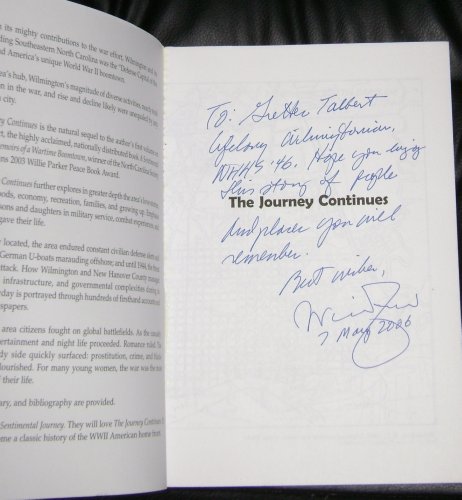 its mighty contributions to the war effort. Wilmington and its
ding Southeastern North Carolina was the "Defense Capital of the
d America's unique World War II boomtown.
a's hub, Wilmington's magnitude of diverse activities,
n in the war, and rise and decline likely were unequaled by any
city.
ey Continues is the natural sequel to the author's first volume
t, the highly acclaimed, nationally distributed book, A Sentimental
emoirs of a Wartime Boomtown, winner of the North Carolina Society
ns 2003 Willie Parker Peace Book Award.
Continues further explores in greater depth the area's
ods, economy, recreation, families, and growing up.
sons and daughters in military service, combat experiences, and
gave their life.
located, the area endured constant civilian defense
German U-boats marauding offshore; and until 1944, the threat
ttack. How Wilmington and New Hanover County
infrastructure, and governmental complexities during
day is portrayed through hundreds of firsthand accounts and
spapers.
area citizens fought on global battlefields. As the
ertainment and night life proceeded. Romance ruled. The
dy side quickly surfaced: prostitution, crime, and
lourished. For many young women, the war was the
f their life.
ary, and bibliography are provided.
Sentimental Journey. They will love The Journey Continues.
ome a classic history of the WWII American home front.
To: Gretka Talbert
lifelong Wilmingtonian,
NHHS '46. Hope you enjoy
this story of people
The Journey Continues
and places you will
remember.
Best wishes,
7 May 2006